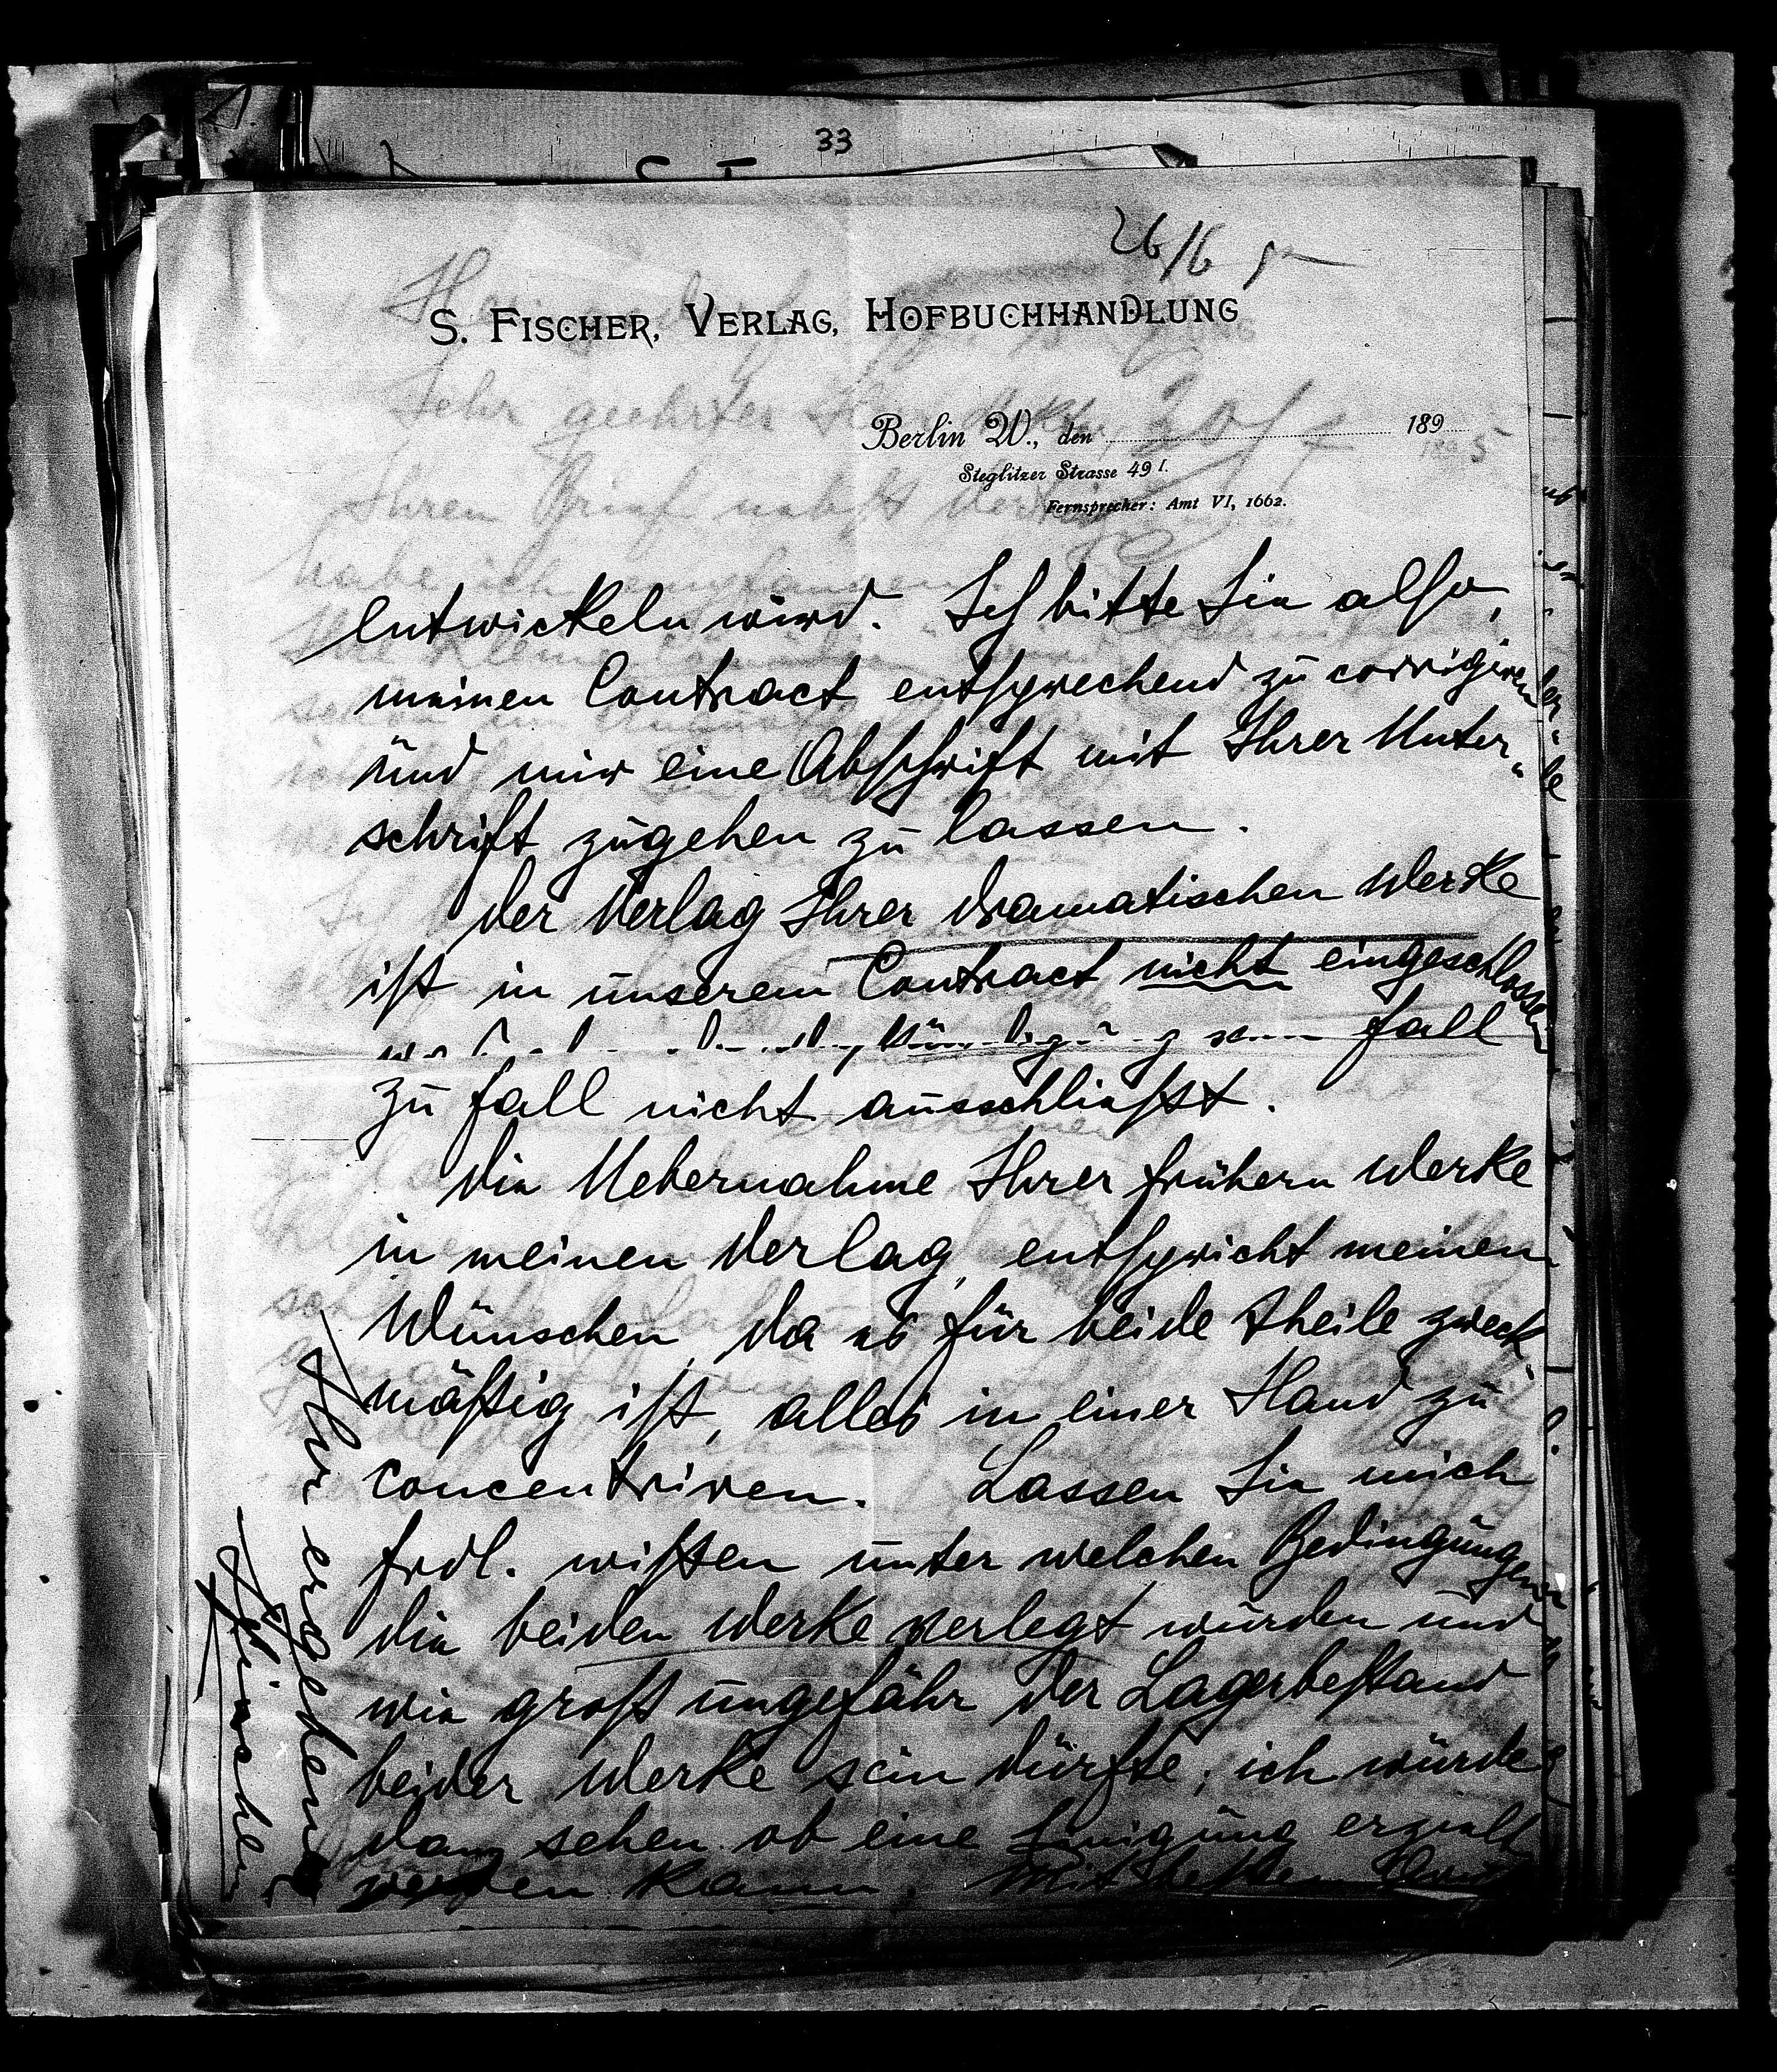 33
26/6
S. FISCHER, VERLAG, HOFBUCHHANDLUNG
Berlin W., den 189
Steglitzer Strasse 49 I.
Fernsprecher: Amt VI, 1662.
entwickeln wird. Ich bitte Sie also,
meinen Contract entsprechend zu corrigiren
und mir eine Abschrift mit Ihrer Unter-
schrift zugehen zu lassen.
Der Verlag Ihrer dramatischen Werke
ist in unserem Contract nicht eingeschlossen
Fall
zu Fall nicht ausschließt.
Die Uebernahme Ihrer frühern Werke
in meinen Verlag, entspricht meinen
Wünschen, da es für beide Theile zweck-
mäßig ist, alles in einer Hand zu
concentriren. Lassen Sie mich
frdl. wissen unter welchen Bedingungen
die beiden Werke verlegt wurden und
wie groß ungefähr der Lagerbestand
beider Werke sein dürfte; ich würde
dann sehen ob eine Einigung erzielt
werden kann. Mit bestem
Ihr ergebener
SFischer